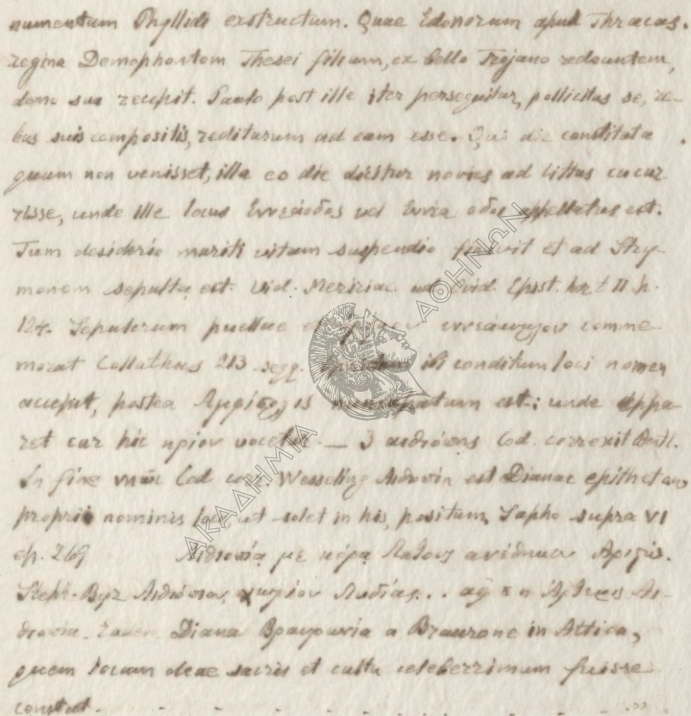 numentum Phyllidi exstructum. Quae Edonorum apud Thracas
regina Demophontem Thesei filium, ex bello Trojano redeuntem,
domo sua recepit. Paulo post ille iter persequitur, pollicitus se, re-
bus suis compositis, rediturum ad eam esse. Qui die constituta
quum non venisset, illa eo die dicitur novies ad littus cucur
risse, unde ille locus vel appellatus est.
Tum desiderio mariti vitam suspendio finivit et ad Stry-
monem sepulta est. Vid. Meziriac ad Ovid. Epist. her. t II p.
124. Sepulcrum puellae comme
morat Colluthus 213 seqq. ibi conditum loci nomen
accepit, postea est: unde appa
ret cur hic ηρίον vocetur. — 3 Cod. correxit Bentl.
In fine Cod corr. Wesseling est Dianae epitheton,
proprii nominis loco ut solet in his, positum, Sapho supra VI
ep. 269 με κόρα Λατους ανέθηκεν
Steph. Byz χωρίον
Eadem Diana Βραυρωνία a Braurone in Attica,
quem locum deae sacris et cultu celeberrimum fuisse
constat.
ΑΚΑΔΗΜΙΑ ΑΘΗΝΩΝ